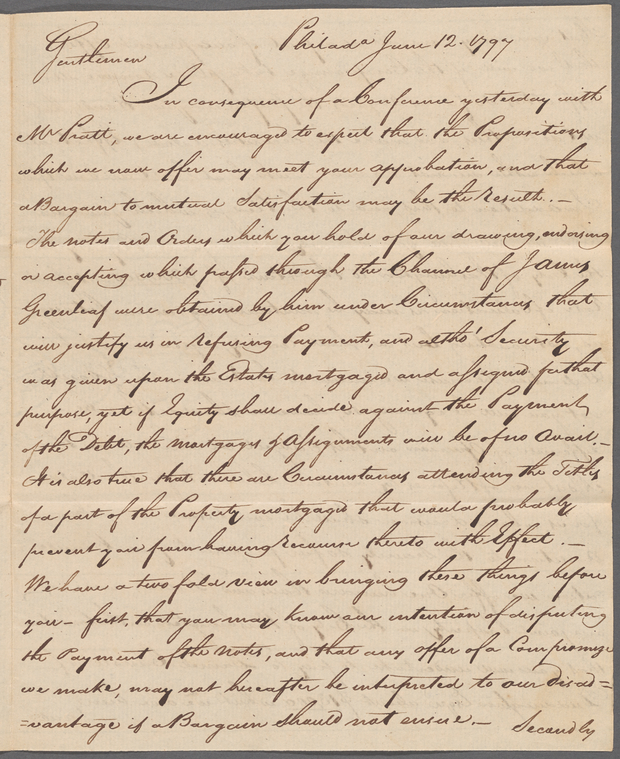 Philada June 12. 1797
Gentlemen
In consequence of a Conference yesterday with
Mr Pratt, we are encouraged to expect that the Propositions
which we now offer may meet your approbation, and that
a Bargain to mutual Satisfaction may be the Result. —
The notes and Orders which you hold of our drawing, endorsing
or accepting which passed through the Channel of James
Greenleaf were obtained by him under Circumstances that
will justify us in refusing Payment, and altho' Security
was given upon the Estates mortgaged and assigned for that
purpose, yet if Equity shall decide against the Payment
of the Debt, the mortgages & Assignments will be of no avail. —
It is also true that there are Circumstances attending the Titles
of a part of the Property mortgaged that would probably
prevent you from having recourse thereto with Effect. —
We have a two fold view in bringing these things before
you — first, that you may know our intention of disputing
the Payment of the Notes, and that any offer of a Compromise
we make, may not hereafter be interpreted to our disad=
=vantage if a Bargain should not ensue. —
Secondly